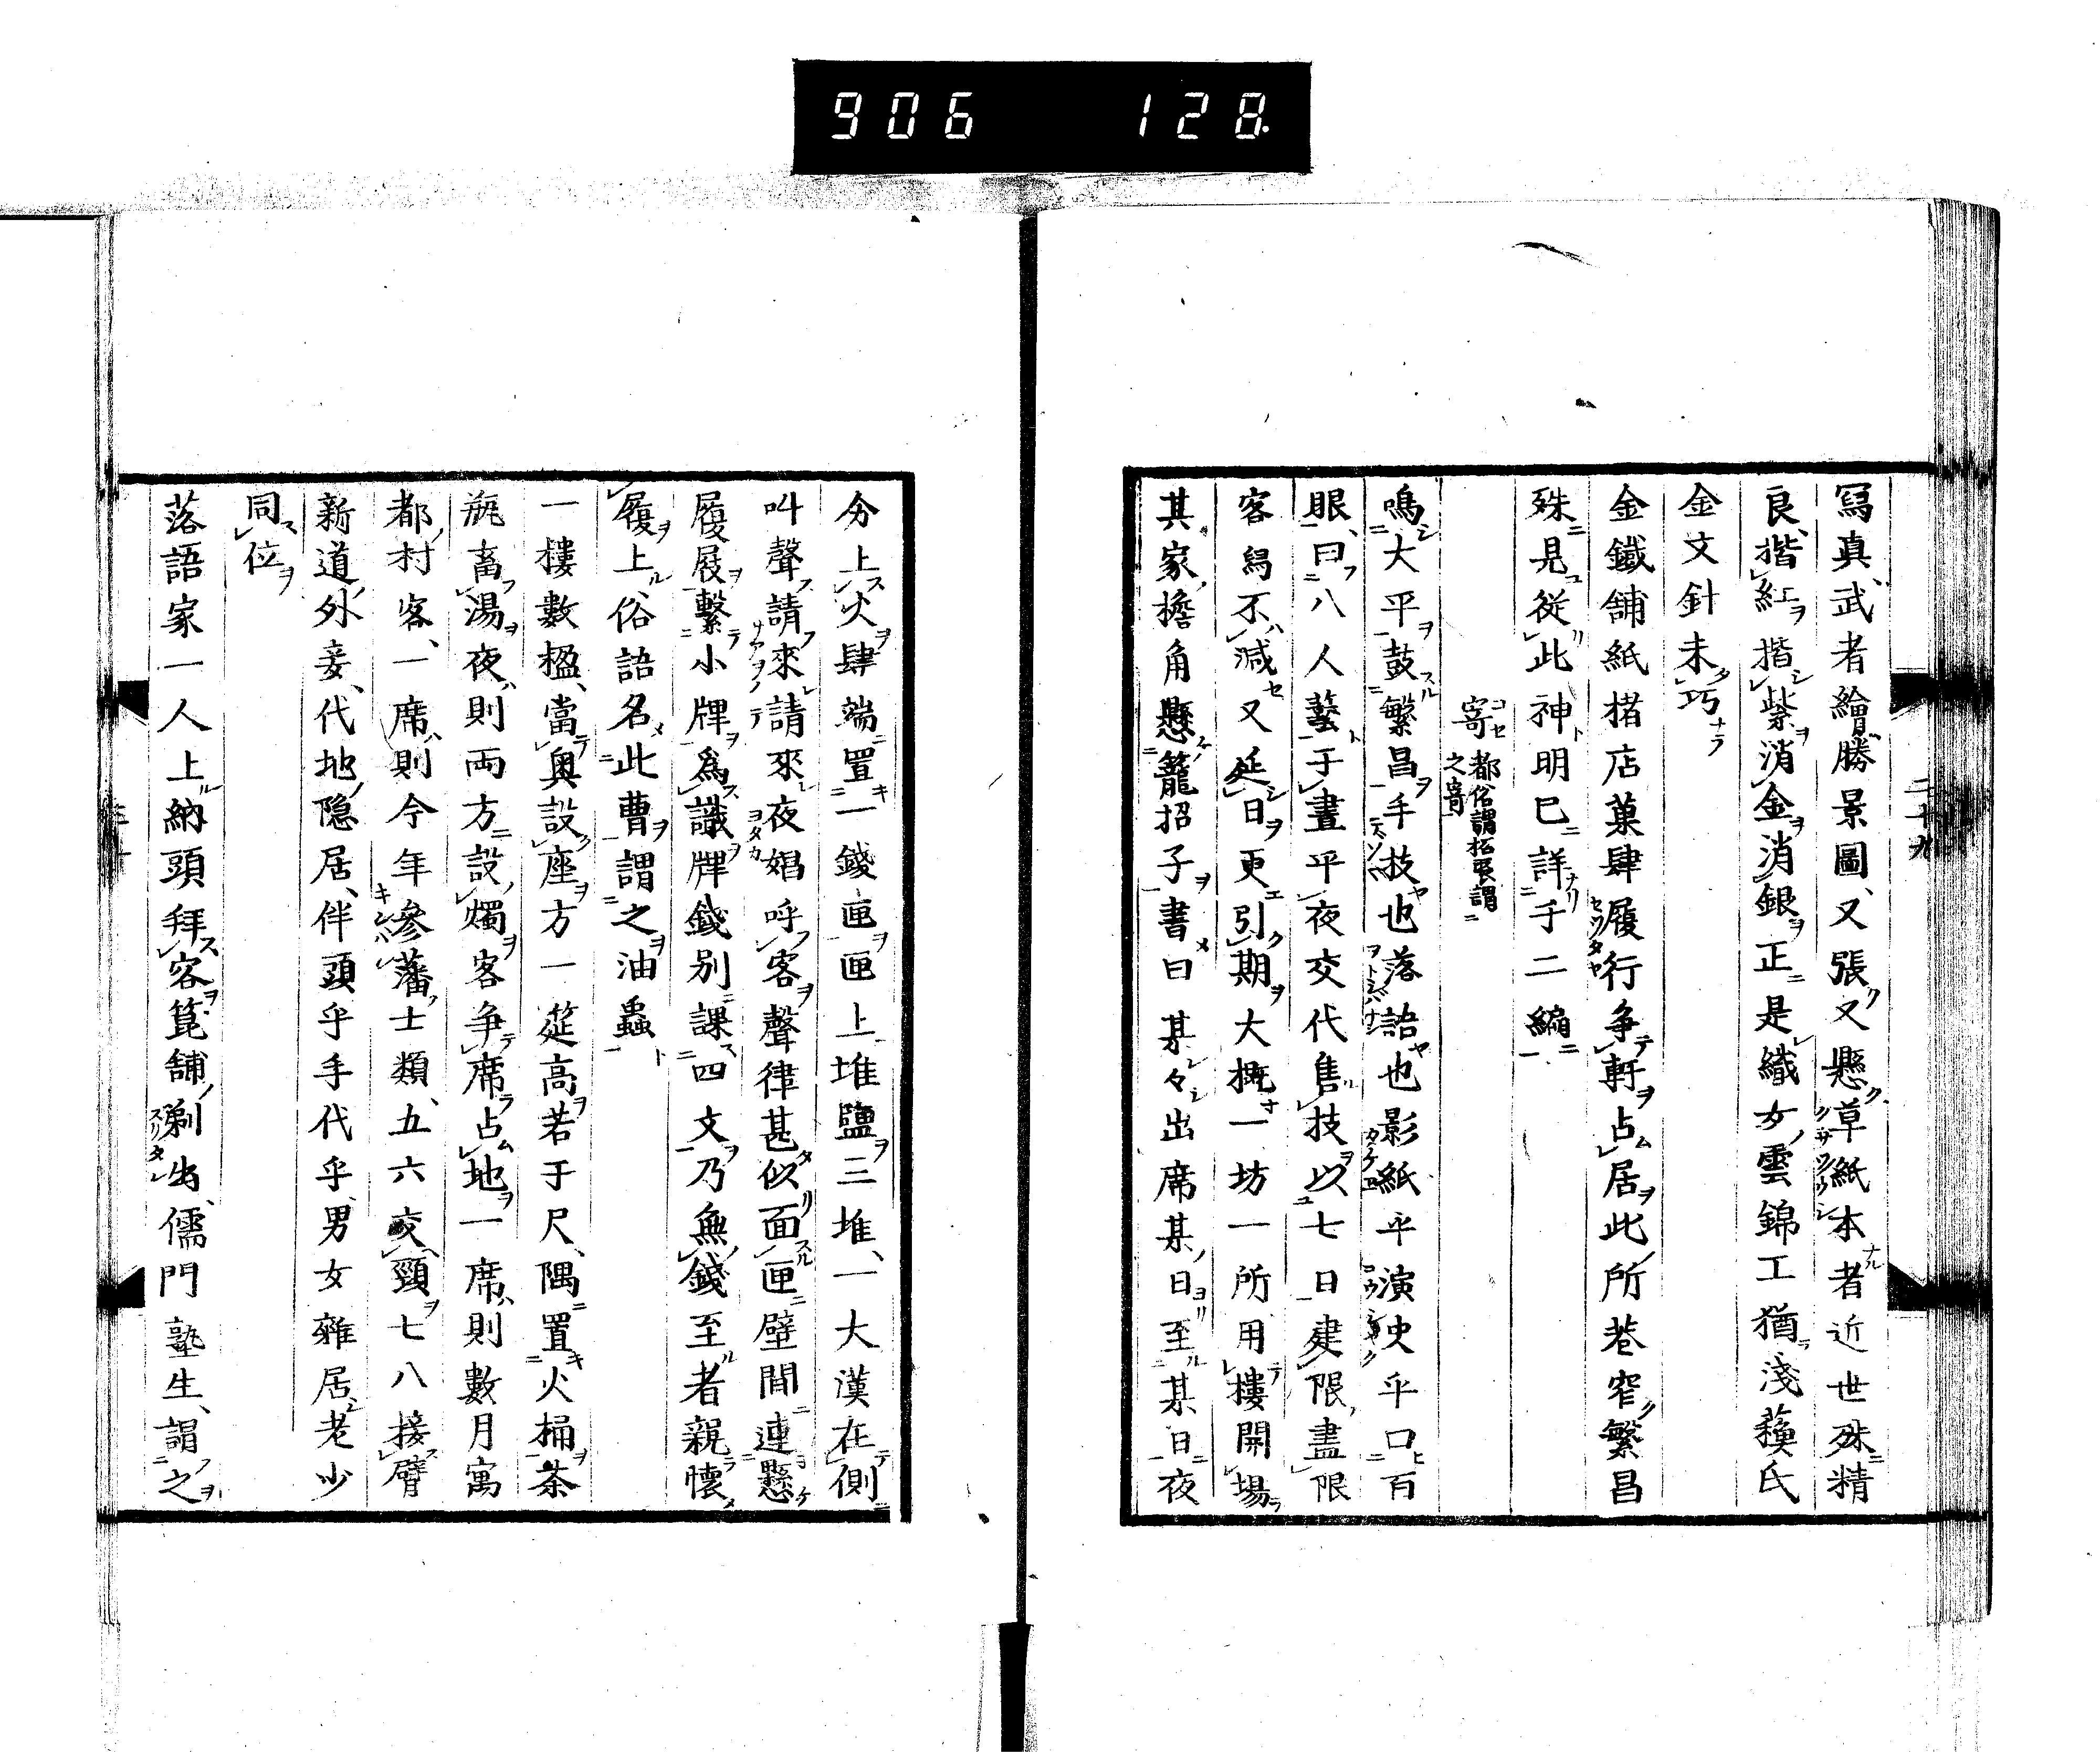 906 128.
寫真、武者繪、勝景圖、又張又懸草紙本者近世殊精
良、揩紅揩紫消金消銀正是織女雲錦工猶淺薐氏
金文針未巧
金鐵舗紙楮店菓肆履行争軒占居此所巷窄繁昌
殊見従此神明已詳于二編
寄 都俗謂招張謂之寄
鳴大平鼓繁昌手技也落語也影紙乎演史乎口百
眼、曰八人藝于晝乎夜交代售技以七日建限、盡限
客舄不減又延日更引期大概一坊一所用樓開場
其家檐角懸籠招子書曰某々出席某日至某日夜
分上火肆端置一錢匣匣上堆鹽三堆、一大漢在側
叫聲請來請來夜娼呼客聲律甚似面匣壁間連懸
履屐繫小牌為識牌錢別課四文乃無錢至者親懷
履上俗語名此曹謂之油蟲
一樓數楹、當奥設座方一筵高若于尺、隅置火桶茶
瓶畜湯夜則両方設燭客争席占地一席則數月寓
都村客、一席則今年参藩士類、五六交頸七八接臂
新道外妾、代地隠居、伴頭乎手代乎男女雜居老少
同位
落語家一人上納頭拜客箆舗剃出、儒門塾生、謂之